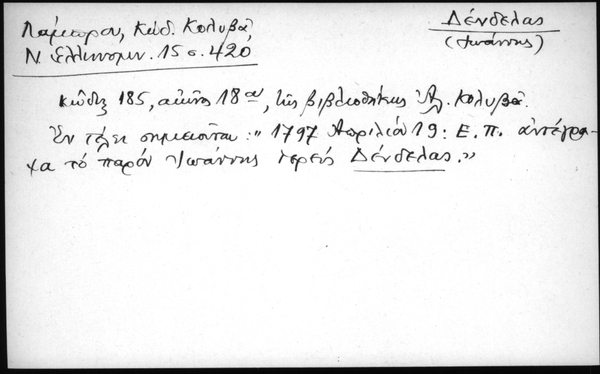 Λάμπρου, Κώδ. Κολυβᾶ,
Ν. Ἑλληνομν. 15 σ. 420
Δένδελας
(Ἰωάννης)
Κῶδιξ 185, αἰῶνος 18ου, τῆς βιβλιοθήκης Ἀλ. Κολυβᾶ.
Ἐν τέλει σημειοῦται: "1797 Ἀπριλίου 19: Ε. Π. ἀντέγρα-
ψα τὸ παρόν Ἰωάννης ἱερεὺς Δένδελας."